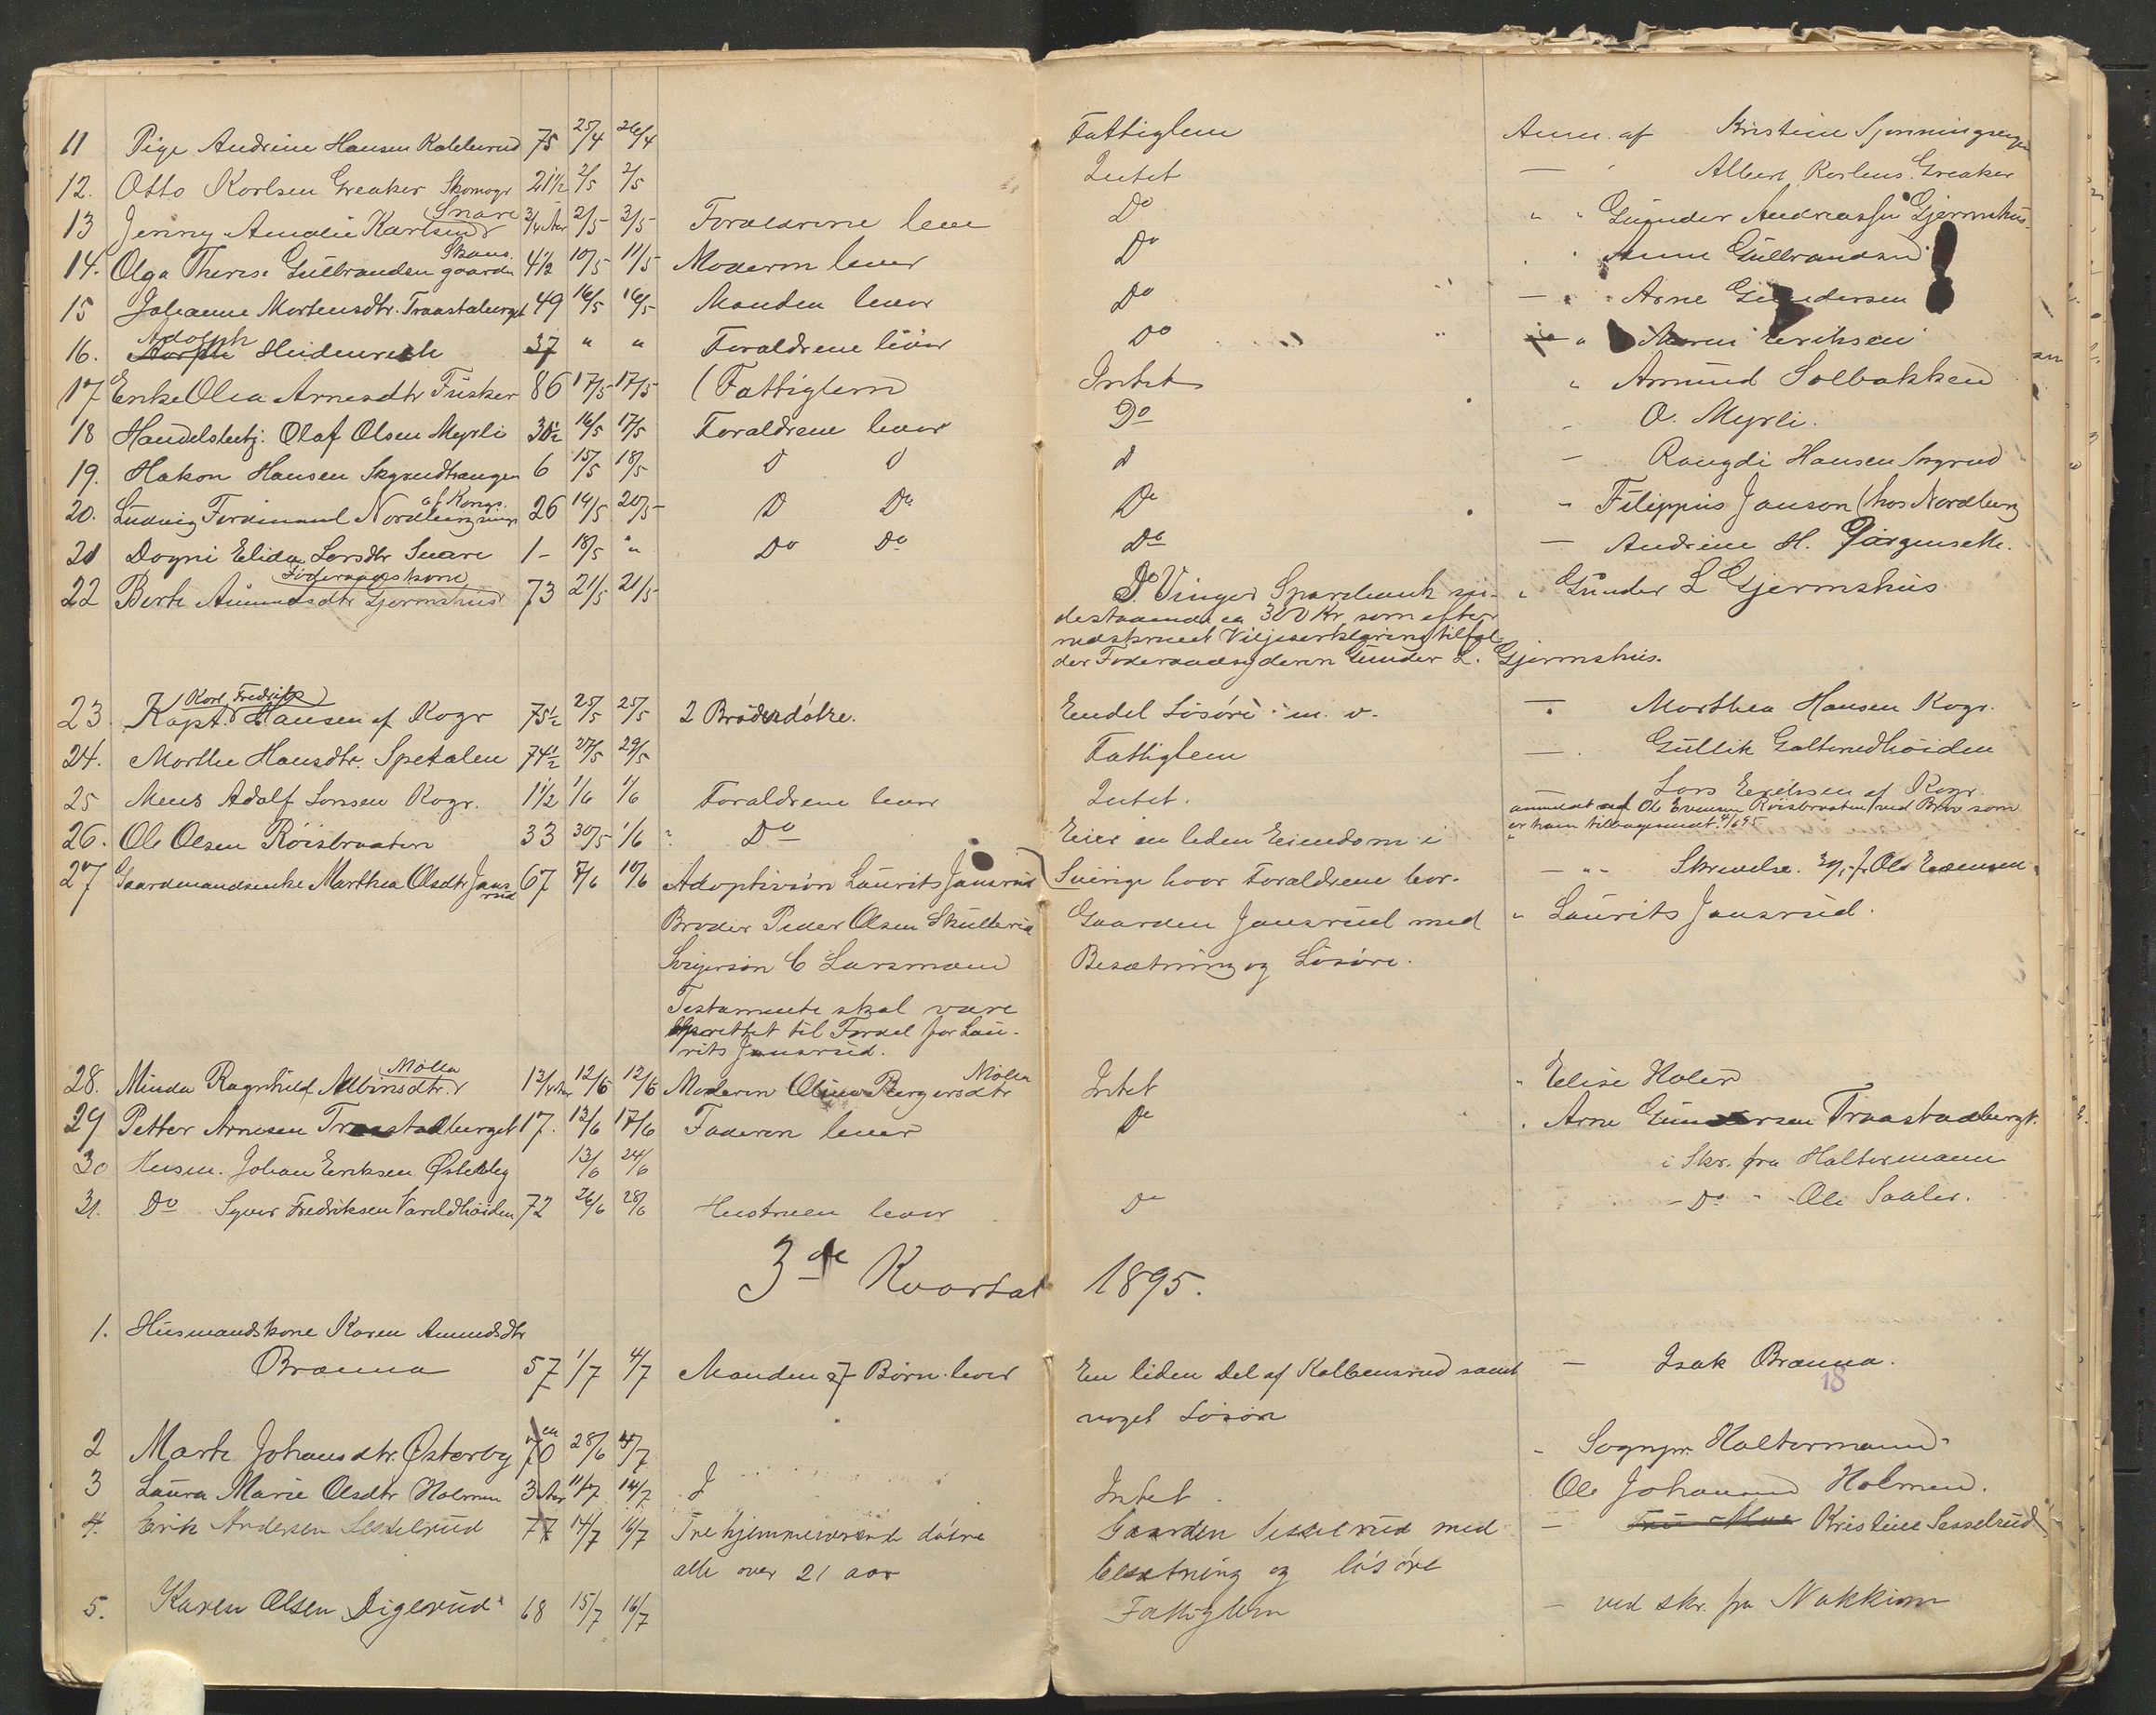 11 Pige Andrine Hansen Kolbenrud 75 25/4 26/4 Fattiglem Anm. af Kristine
12. Otto Karlsen Greaker Skomagr 21½ 2/5 2/5 Intet — Albert Karlsens Greaker
Snare
13 Jenny Amalie Karlsend 3/4 Aar 2/5 3/5 Forældrene lever Do " " Gunder Andreassen Gjermshus
Skans
14. Olga Therese Gulbrandsen gaarden 4½ 10/5 11/5 Moderen lever Do Anne Gulbrandsen
15 Johanne Mortensdtr. Traastaberget 49 16/5 16/5 Manden lever Do — " Arne Gundersen
Adolph
16. Heidenreich 37 " " Forældrene lever Do " Maren Eriksen
17 Enke Olea Arnesdtr Fusker 86 17/5 17/5 (Fattiglem) Intet " Amund Solbakken
18 Handelsbetj. Olaf Olsen Myrli 30½ 16/5 17/5 Forældrene lever Do - O. Myrli.
19. Hakon Hansen Skyrudhaugen 6 15/5 18/5 D D d — Rangdi Hansen
af Kongs.
20. Ludvig Ferdinand Nordberg vinger 26 14/5 20/5 D Do Do - Filippus Janson (hos Nordberg
21 Dagni Elida Larsdtr Snare 1 - 18/5 " Do Do Do — Andrine H. Jørgenseth.
Føderaadskone
22 Berte Amundsdtr Gjermshus 73 21/5 21/5 Do Vinger Sparebank in- " Gunder L Gjermshus
destaaende ca 300 Kr som efter
nedskrevet Viljeserklæring tilfal-
der Føderaadsyderen Gunder L. Gjermshus.
Karl Fredrik
23. Kapt. Hansen af Rogr 75½ 25/5 25/5 2 Broderdøtre. Endel Løsøre m. v. — Marthea Hansen Rogr.
24. Marthe Hansdtr. Spetalen 74½ 27/5 29/5 Fattiglem — Gullik Galterudhøiden
25 Mens Adolf Larsen Rogr. 1½ 1/6 1/6 Forældrene lever Intet. — Lars Eriksen af Rogr.
anmeldt ved Ole Evensen Røisbraaten ved Brev som
26. Ole Olsen Røisbraaten 33 30/5 1/6 " Do Eier en liden Eiendom i er ham tilbagesendt. 4/6 95
27 Gaardmandsenke Marthea Olsdtr Jans- 67 7/6 10/6 Adoptivsøn Laurits Jansrud Sverige hvor Forældrene bor. — " - Skrivelse. f. Ole Evensen.
rud
Broder Peder Olsen Skulterud Gaarden Jansrud med " Laurits Jansrud.
C Larsmoen Besætning og Løsøre.
Testamente skal være
oprettet til Fordel for Lau-
rits Jansrud.
Mølla Mølla
28. Minda Ragnhild Albinsdtr. 1 3/4 Aar 12/6 12/6 Moderen Oline Bergersdtr Intet " Elise Holen
29 Petter Arnesen Traastadberget 17. 13/6 17/6 Faderen lever Do " Arne Gundersen Traastadbergt.
30 Husm. Johan Eriksen Østerby 13/6 24/6 i Skr. fra Haltermann
31. Do Syver Fredriksen Vareldhøiden 72 26/6 28/6 Hustruen lever Do - Do - Ole Saaler.
3de Kvartal 1895.
1. Husmandskone Karen Amundsdtr
Brænna 57 1/7 4/7 Manden og 7 Børn lever En liden Del af Kolbensrud samt — Isak Brænna.
18
noget Løsøre
2 Marte Johansdtr. Østerby 70 28/6 4/7 - Sognpr. Haltermann
3 Laura Marie Olsdtr Holmen 3 Aar 11/7 14/7 Intet Ole Johannes Holmen.
4. Erik Andersen Sesselrud 77 14/7 16/7 Tre hjemmeværende døtre Gaarden Sesselrud med — Kristine Sesselrud
alle over 21 aar besætning og løsøre
5. Karen Olsen Digerud 68 15/7 16/7 Fattiglem — ved skr. fra Nakkim